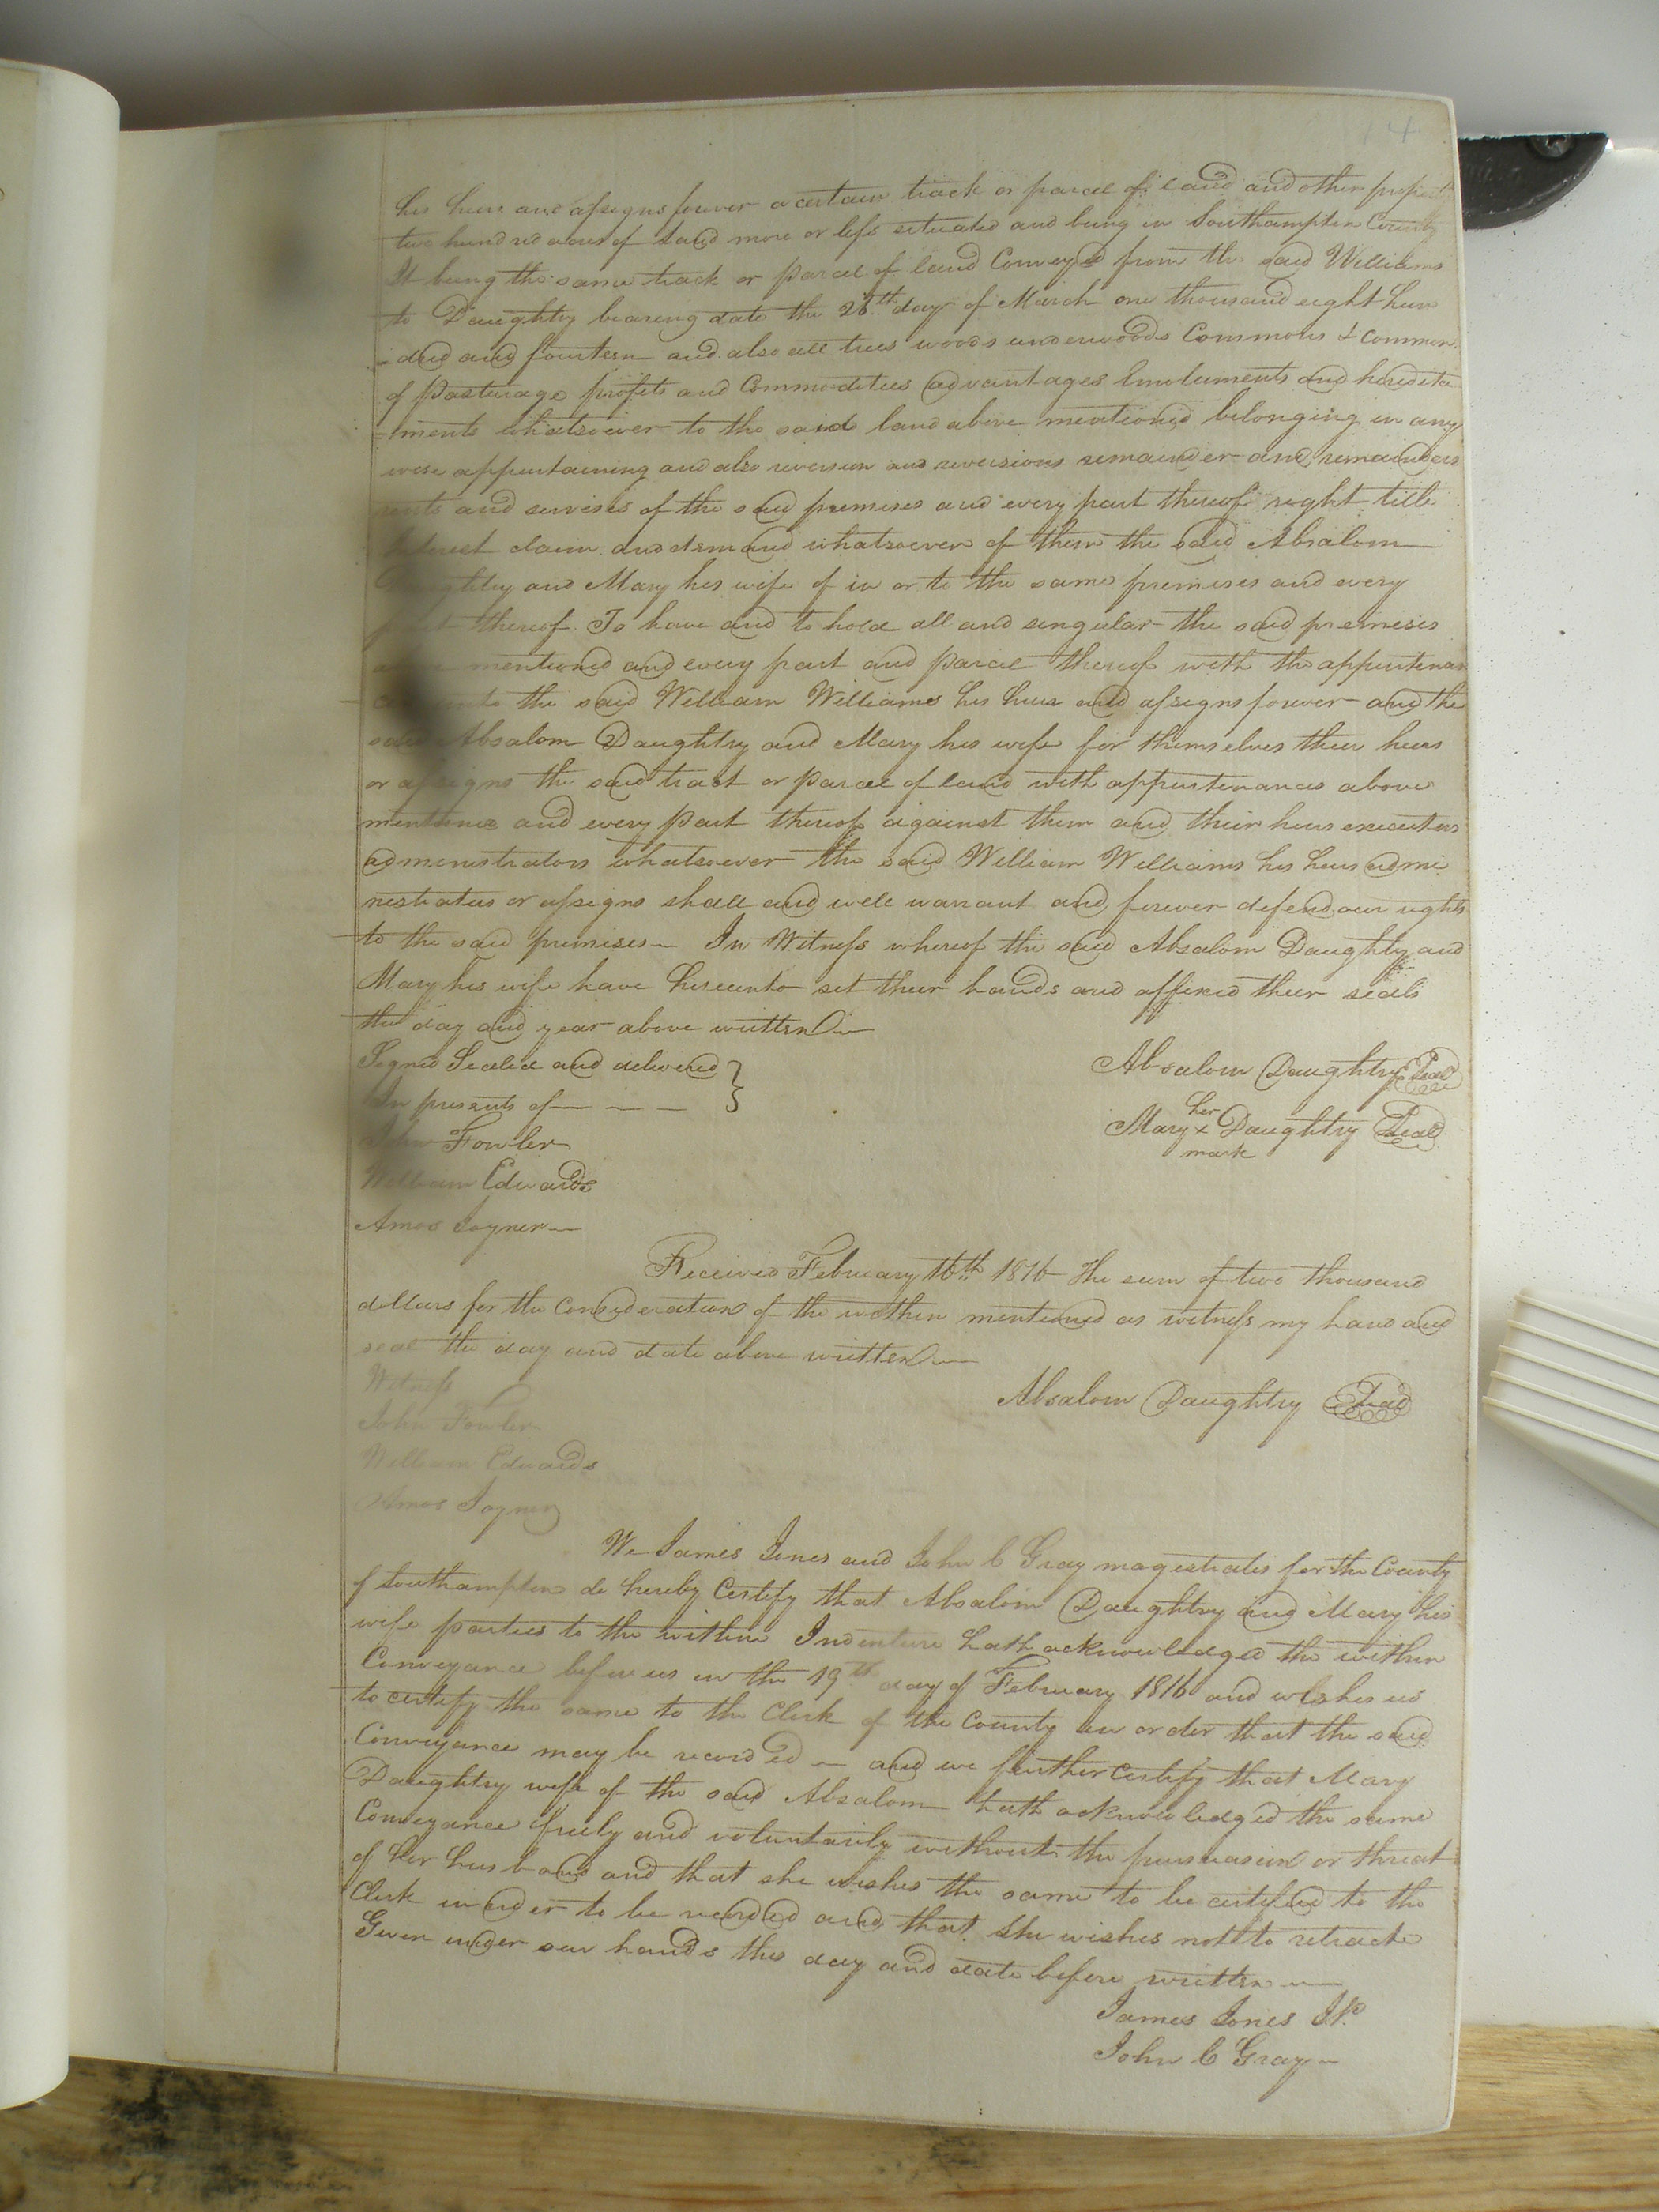 14
his heirs and assigns forever a certain track or parcel of land and other property
two hundred acres of Land more or less situated and being in Southampton County
It being the same track or parcel of land Conveyed from the said Williams
to Daughtry bearing date the 26th day of March one thousand eight hun
-dred and fourteen and also all trees woods underwoods Commons & common
of Pasturage profits and Commodities advantages Emoluments and heredita
=ments whatsoever to the said land above mentioned belonging in any
wise appurtaining and also reversion and reversions remainder and remainders
rents and servises of the said premises and every part thereof right title
Interest claim and demand whatsoever of them the said Absalom
Daughtry and Mary his wife of in or to the same premises and every
part thereof. To have and to hold all and singular the said premises
above mentioned and every part and parcel thereof with the appurtenan
ces unto the said William Williams his heirs and assigns forever and the
said Absalom Daughtry and Mary his wife for themselves their heirs
or assigns the said tract or parcel of land with appurtenances above
mentioned and every Part thereof against them and their heirs executors
administrators whatsoever the said William Williams his heirs admi
nistrators or assigns shall and will warrant and forever defend our rights
to the said premises In Witness whereof the said Absalom Daughtry and
Mary his wife have hereunto set their hands and affixed their seals
the day and year above written
Signed Sealed and delivered } Absalom Daughtry Seal
In presents of
her
Mary x Daughtry Seal
mark
John Fowler
William Edwards
Amos Joyner
Received February 16th 1816 The sum of two thousand
dollars for the Consideration of the within mentioned as witness my hand and
seal the day and date above written
Witness
Absalom Daughtry Seal
John Fowler
William Edwards
Amos Joyner
We James Jones and John C Gray magistrates for the County
of Southampton do hereby Certify that Absalom Daughtry and Mary his
wife parties to the within Indenture hath acknowledged the within
Conveyance before us on the 19th day of February 1816 and wishes us
to certify the same to the Clerk of the County in order that the said
Conveyance may be recorded and we further Certify that Mary
Daughtry wife of the said Absalom hath acknowledged the same
Conveyance freely and voluntarily without the persuasion or threat
of her husband and that she wishes the same to be certified to the
Clerk in order to be recorded and that she wishes not to retract
Given under our hands this day and date before written
James Jones J.P.
John C Gray